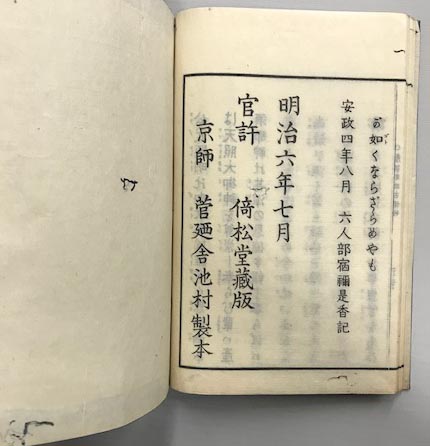 が如くならざらめやも
安政四年八月 六人部宿禰是香記
明治六年七月
官許 倚松堂藏版
京師 菅廼舎池村製本